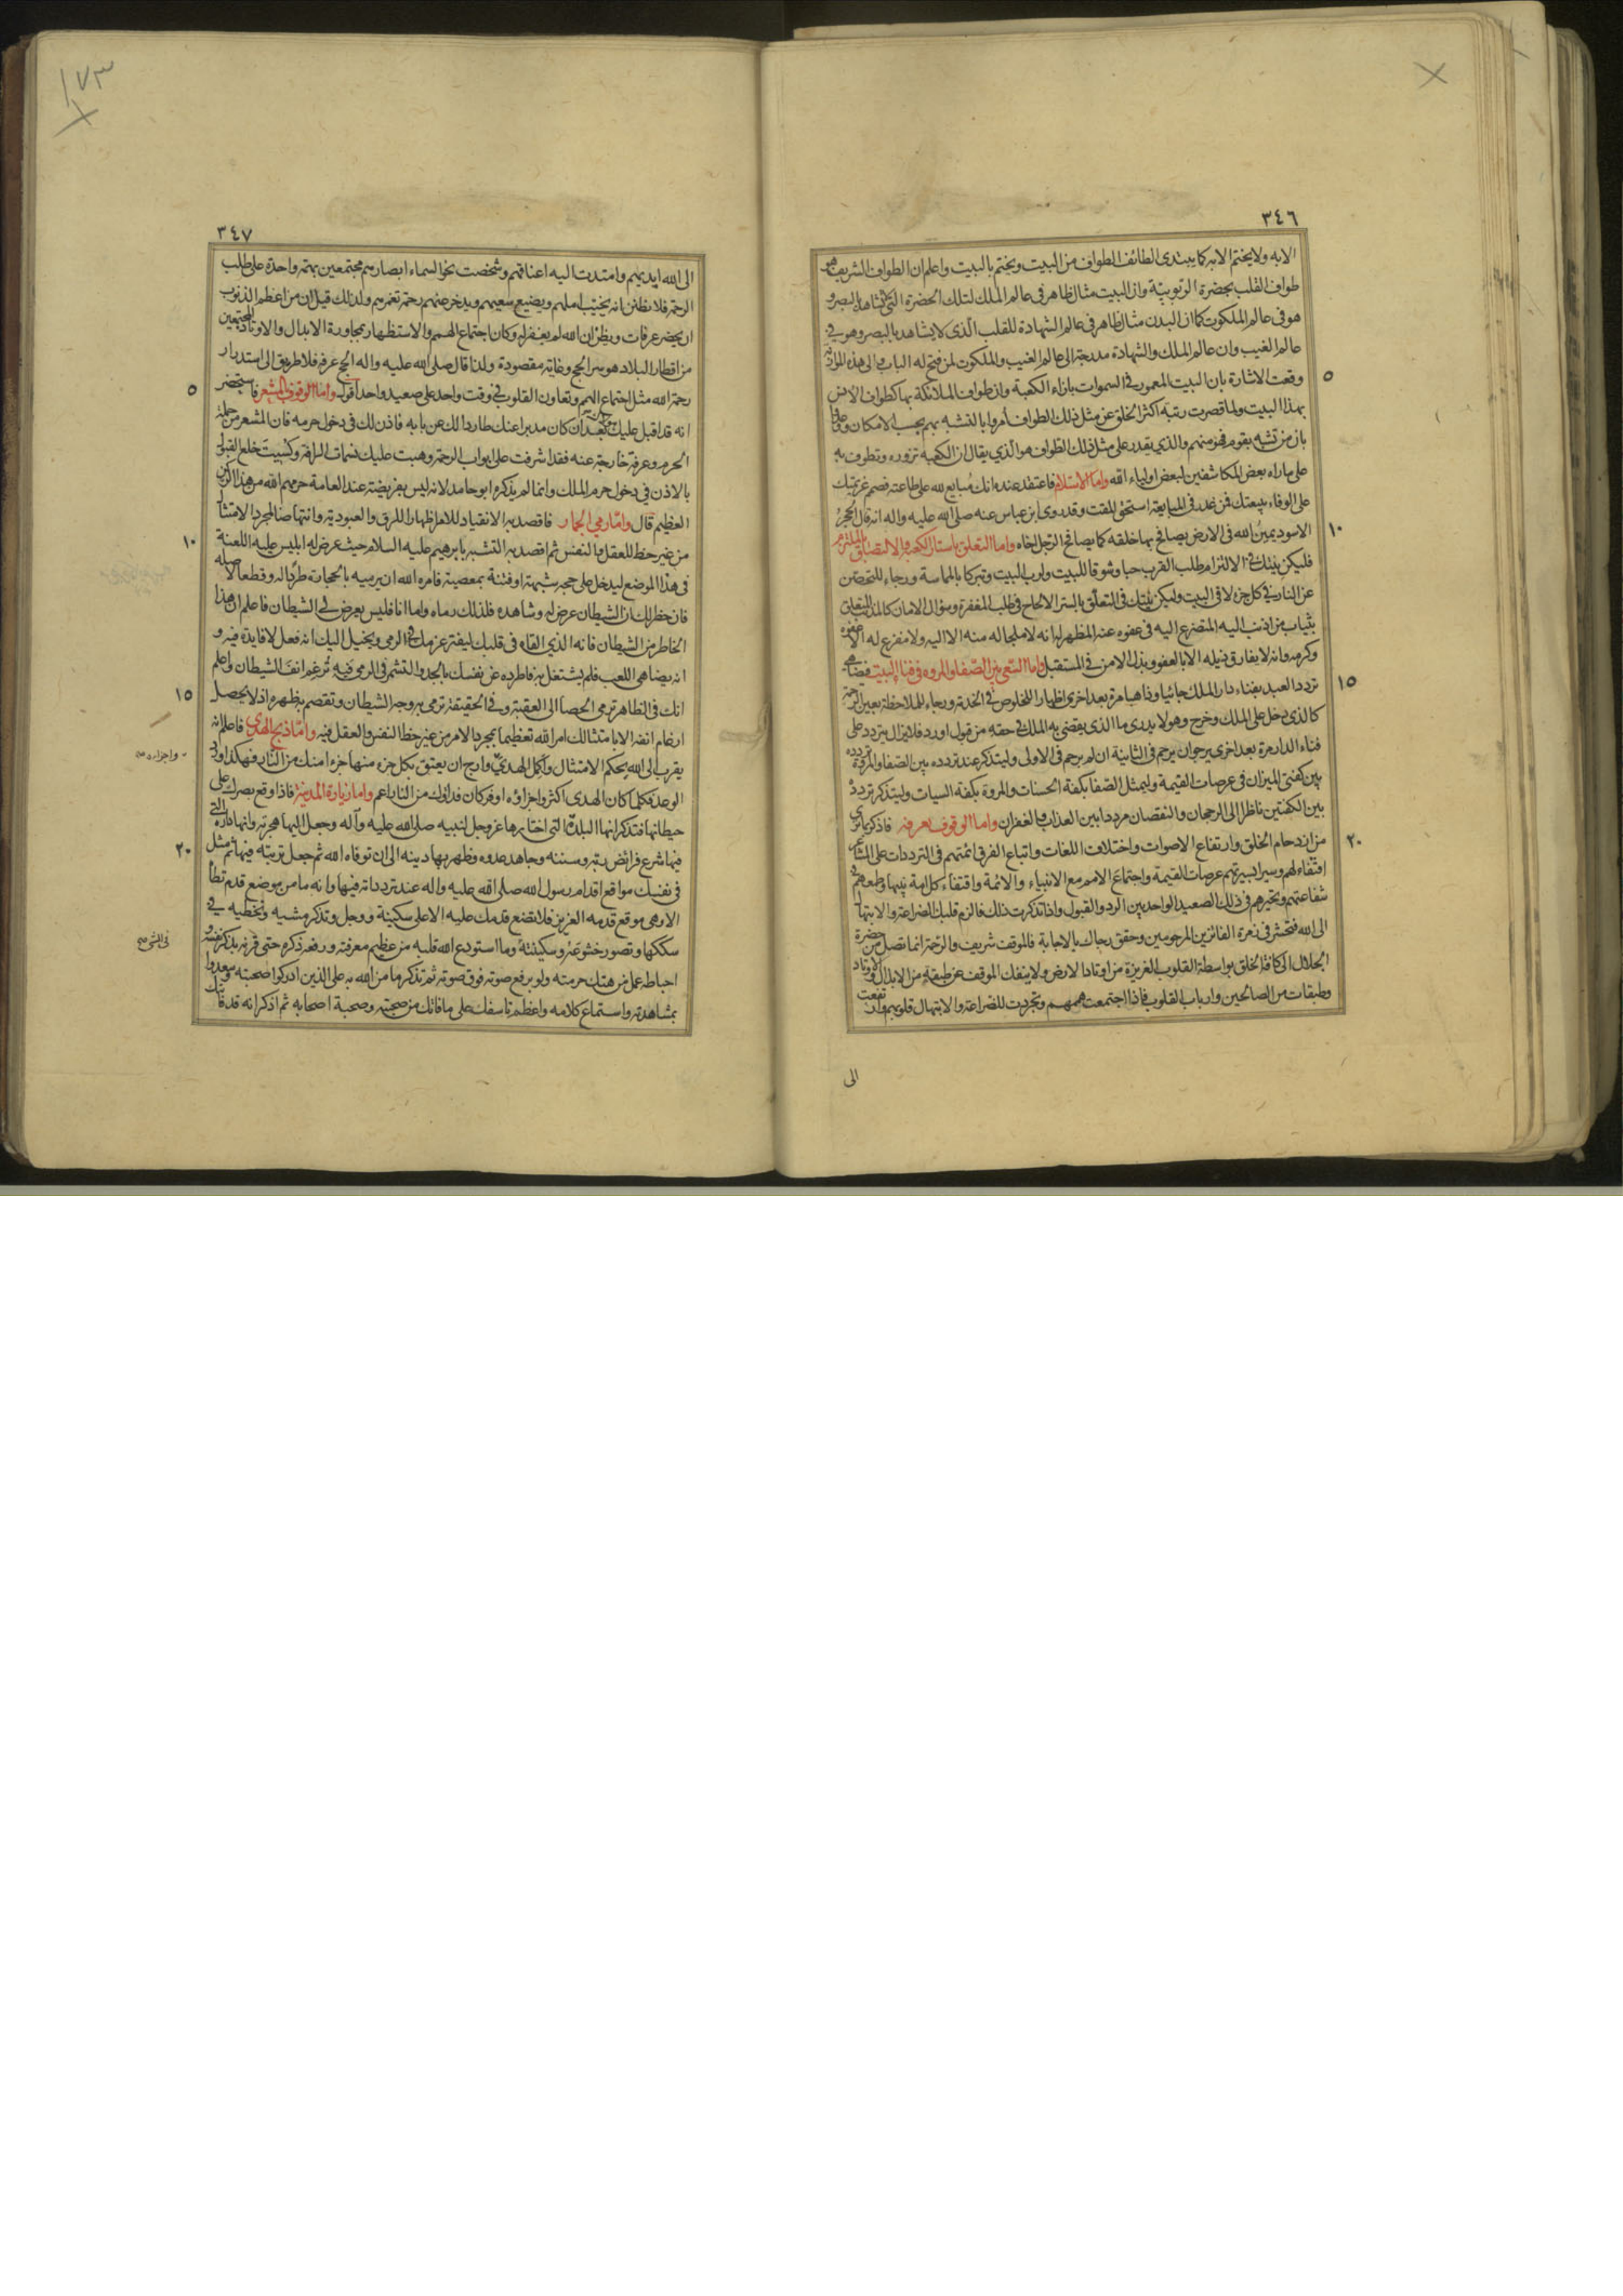 ٣٤٦
الا به ولا يختم الا به كما يبتدى الطائف الطواف من البيت ويختم بالبيت واعلم ان الطواف الشريف هو
طواف القلب بحضرة الربوبيّة وان البيت مثال ظاهر فى عالم الملك لتلك الحضرة التى لا تشاهد بالبصر و
هو فى عالم الملكوت كما ان البدن مثال ظاهر فى عالم الشهادة للقلب الّذى لا يشاهد بالبصر وهو فى
عالم الغيب وان عالم الملك والشهادة مدرجة الى عالم الغيب والملكوت لمن فتح له الباب والى هذه الموازنة
٥
وقعت الاشارة بان البيت المعمور فى السموات بازاء الكعبة وان طواف الملائكة بها كطواف الانس
بهذا البيت ولما قصرت رتبة اكثر الخلق عن مثل ذلك الطواف أمروا بالتشبه بهم بحسب الامكان ووعدوا
بان من تشبه بقوم فهو منهم والذي يقدر على مثل ذلك الطواف هو الّذي يقال ان الكعبة تزوره وتطوف به
على ما راه بعض المكاشفين لبعض اولياء الله واما الاستلام فاعتقد عنده انك مُبايع لله على طاعته فصمم عزيمتك
على الوفاء ببيعتك فمن غدر فى المبايعة استحق المقت وقد روى ابن عباس عنه صلى الله عليه واله انه قال الحجرُ
١٠
الاسود يمينُ الله فى الارض يصافح بها خلقه كما يصافح الرّجل اخاه واما التعلق باستار الكعبة والالتصاق بالملتزم
فليكن نيتك فى الالتزام طلب القرب حبا وشوقا للبيت ولرب البيت وتبركا بالمماسة ورجاء للتحصّن
عن النار فى كل جزء لاقى البيت وليكن نيّتك فى التعلّق بالستر الالحاح فى طلب المغفرة وسؤال الامان كالمذنب المتعلق
بثياب من اذنب اليه المتضرع اليه فى عفوه عنه المظهر له انه لا ملجا له منه الا اليه ولا مفزع له الا عفوه
وكرمه وانه لا يفارق ذيله الا بالعفو وبذل الامن فى المستقبل واما السّعى بين الصّفا والمروه فى فناء البيت فيضاهى
١٥
تردد العبد بفناء دار الملك جائيا وذاهبا مرة بعد اخرى اظهارا للخلوص فى الخدمة ورجاء للملاحظة بعين الرحمة
كالذى دخل على الملك وخرج وهو لا يدرى ما الذى يقضى به الملك فى حقه من قبول او رد فلا يزال يتردد على
فناء الدار مرة بعد اخرى يرجو ان يرحم فى الثانية ان لم يرحم فى الاولى وليتذكر عند تردده بين الصّفا والمروة تردده
بين كفتى الميزان فى عرصات القيمة وليمثل الصّفا بكفة الحسنات والمروة بكفة السيات وليتذكر تردده
بين الكفتين ناظرا الى الرجحان والنقصان مرددا بين العذاب والغفران واما الوقوف بعرفه فاذكر بما ترى
٢٠
من ازدحام الخلق وارتفاع الاصوات واختلاف اللغات واتباع الفرق ائمتهم فى الترددات على المشاعر
اقتفاء لهم وسيرا بسيرتهم عرصات القيمة واجتماع الامم مع الانبياء والائمة واقتفاء كل امة نبيها وطمعهم فى
شفاعتهم وتحيرهم فى ذلك الصعيد الواحد بين الرد والقبول واذا تذكرت ذلك فالزم قلبك الضراعة والابتهال
الى الله فتحشر فى زمرة الفائزين المرحومين وحقق رجاك بالاجابة فالموقف شريف والرّحمة انما تصل من حضرة
الجلال الى كافة الخلق بواسطة القلوب العزيزة من اوتاد الارض ولا ينفك الموقف عن طبقة من الابدال والاوتاد
وطبقات من الصالحين وارباب القلوب فاذا اجتمعت هممهم وتجردت للضراعة والابتهال قلوبهم وارتفعت
الى
١٧٣
٣٤٧
الى الله ايديهم وامتدت اليه اعناقهم وشخصت نحو السماء ابصارهم مجتمعين بهمة واحدة على طلب
الرحمة فلا تظنن انه يخيّب املهم ويضيع سعيهم ويدخر عنهم رحمة تغمرهم ولذلك قيل ان من اعظم الذنوب
ان يحضر عرفات ويظنّ ان الله لم يغفر له وكان اجتماع الهمم والاستظهار بمجاورة الابدال والاوتاد المجتمعين
من اقطار البلاد هو سر الحج وغايته مقصودة ولذا قال صلى الله عليه واله الحج عرفة فلا طريق الى استدرار
٥
رحمة الله مثل اجتماع الهمم وتعاون القلوب فى وقت واحد على صعيد واحد أقول واما الوقوف بالمشعر فاستحضر
انه قد اقبل عليك بعد ان كان مدبرا عنك طاردا لك عن بابه فاذن لك فى دخول حرمه فان المشعر من جملة
الحرم وعرفة خارجة عنه فقد اشرفت على ابواب الرحمة وهبت عليك نسمات الرافة وكُسيت خلع القبول
بالاذن فى دخول حرم الملك وانما لم يذكره ابو حامد لانه ليس بفريضة عند العامة حرمهم الله من هذا الركن
العظيم قال وامّا رمي الجمار فاقصد به الانقياد للامر اظهارا للرق والعبودية وانتهاضا لمجرد الامتثال
١٠
من غير حظ للعقل والنفس ثم اقصد به التشبه بابرهيم عليه السلام حيث عرض له ابليس عليه اللعنة
فى هذا الموضع ليدخل على حجه شبهة او فتنة بمعصية فامره الله ان يرميه بالحجارة طردًا له وقطعا لامله
فان خطر لك ان الشيطان عرض له وشاهده فلذلك رماه واما انا فليس يعرض لى الشيطان فاعلم ان هذا
الخاطر من الشيطان فانه الذي القاه فى قلبك ليفتر عزمك فى الرمى ويخيل اليك انه فعل لا فايدة فيه و
انه يضاهى اللعب فلم يشتغل به فاطرده عن نفسك بالجد والتشمر فى الرمى فبه تُرغِم انفَ الشيطان واعلم
١٥
انك فى الظاهر ترمى الحصا الى العقبة وفى الحقيقة ترمى به وجه الشيطان وتقصم به ظهره اذ لا يحصل
ارغام انفه الا بامتثالك امر الله تعظيما بمجرد الامر من غير حظ النفس والعقل فيه وامّا ذبح الهدى فاعلم انه
يقرب الى الله بحكم الامتثال واكمل الهدىّ وارج ان يعتق بكل جزء منها جزءا منك من النار فهكذا ورد
واجزاءه
الوعد فكلما كان الهدى اكثر واجزاؤه اوفر كان فداؤك من النار اعم واما زيارة المدينة فاذا وقع بصرك على
حيطانها فتذكر انها البلدة التى اختارها عز وجل لنبيه صلى الله عليه وآله وجعل اليها هجرته وانها داره التى
٢٠
فيها شرع فرائض ربّه وسننه وجاهد عدوه وظهر بها دينه الى ان توفاه الله ثم جعل تربته فيها ثم مثل
فى نفسك مواقع اقدام رسول الله صلى الله عليه واله عند تردداته فيها وانه ما من موضع قدم تطأ
الا وهى موقع قدمه العزيز فلا تضع قدمك عليه الا على سكينة ووجل وتذكر مشيه وتخطيه فى
سككها وتصور خشوعه وسكينته وما استودع الله قلبه من عظيم معرفته ورفعة ذكره حتى قرنه بذكر نفسه و
احباط عمل من هتك حرمته ولو برفع صوته فوق صوته ثم تذكر ما من الله به على الذين ادركوا صحبته وسعدوا
بمشاهدته واستماع كلامه واعظم تاسفك على ما فاتك من صحبته وصحبة اصحابه ثم اذكر انه قد فاتك